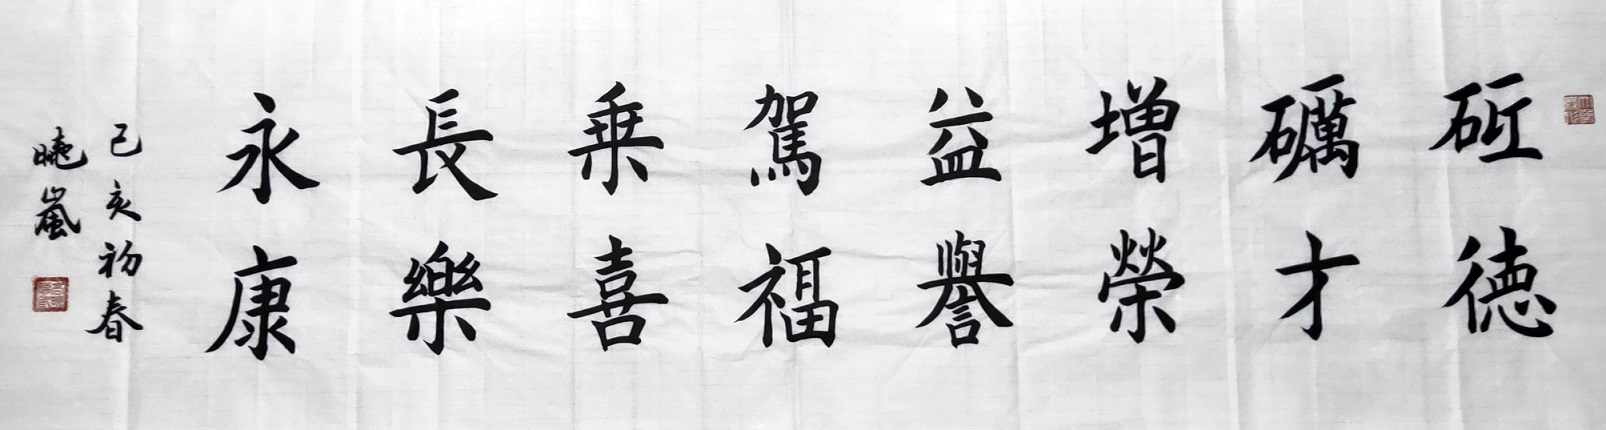 砥德
礪才
增榮
益譽
駕福
乗喜
長樂
永康
己亥初春
曉嵐